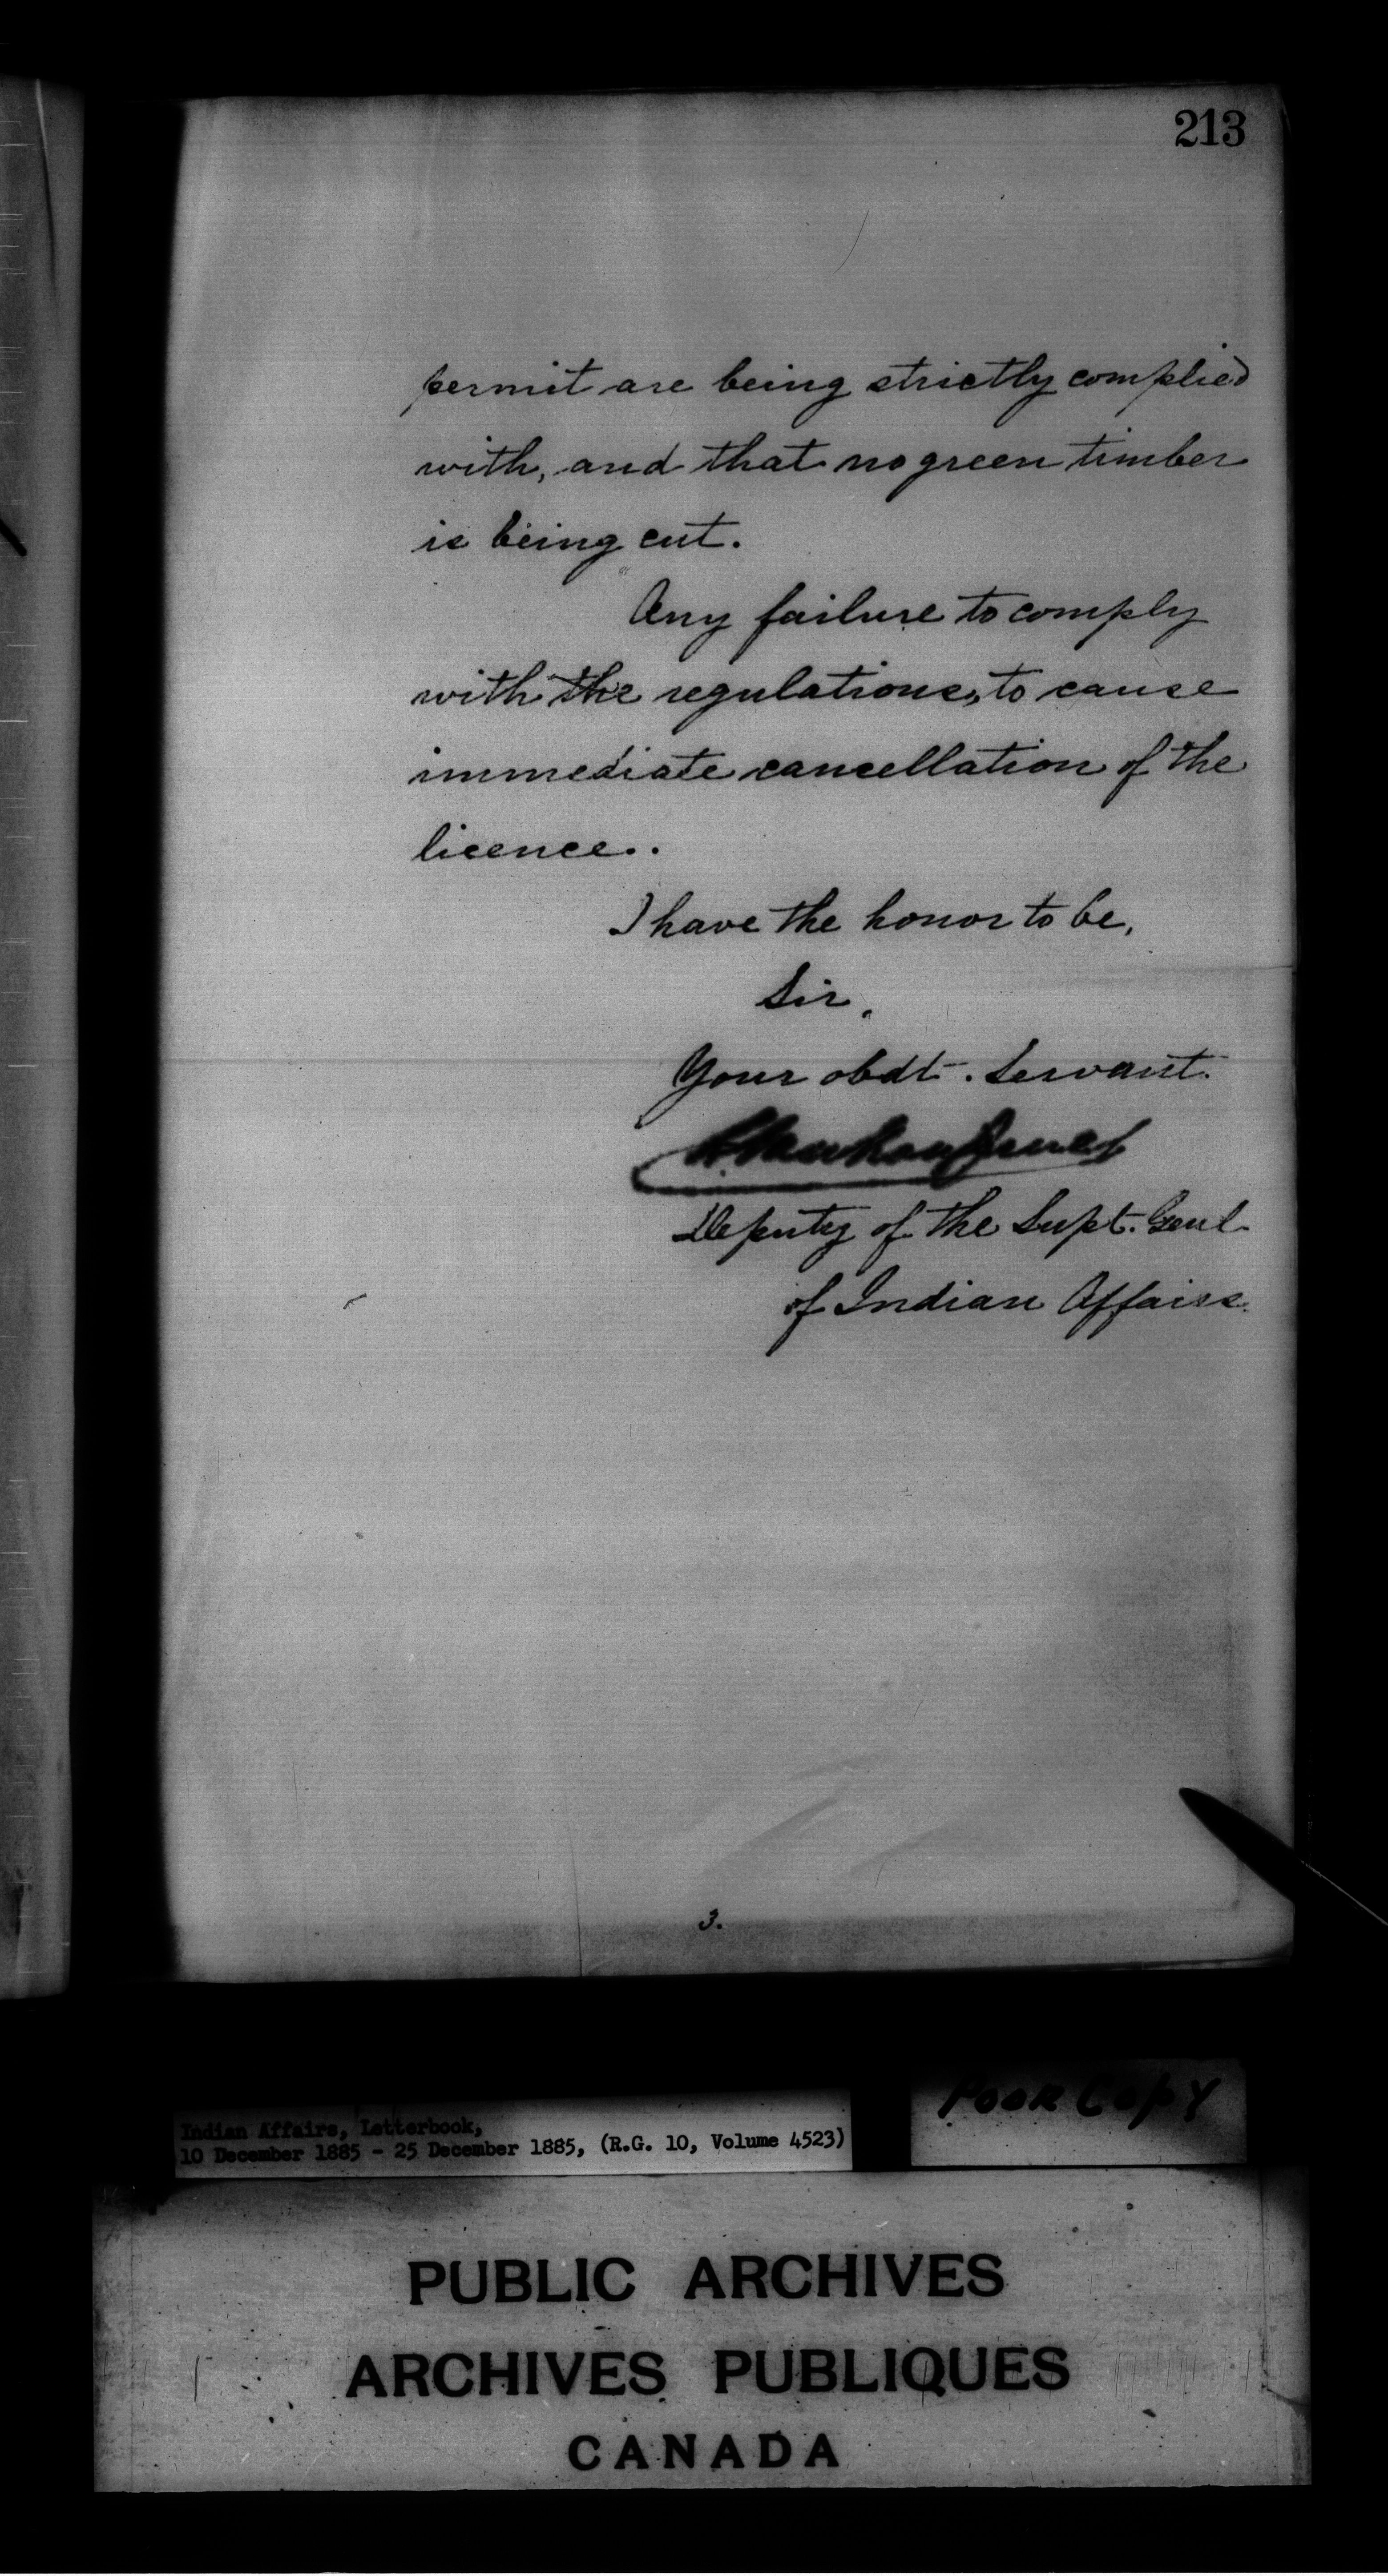 213
permit are being strictly complied
with, and that no green timber
is being cut.
Any failure to comply
with the regulations, to cause
immediate cancellation of the
licence..
I have the honor to be,
Sir,
Your obdt. Servant.
Deputy of the Supt. Genl
of Indian Affairs.
3.
Poor Copy
Indian Affairs, Letterbook,
10 December 1885 - 25 December 1885, (R.G. 10, Volume 4523)
PUBLIC ARCHIVES
ARCHIVES PUBLIQUES
CANADA